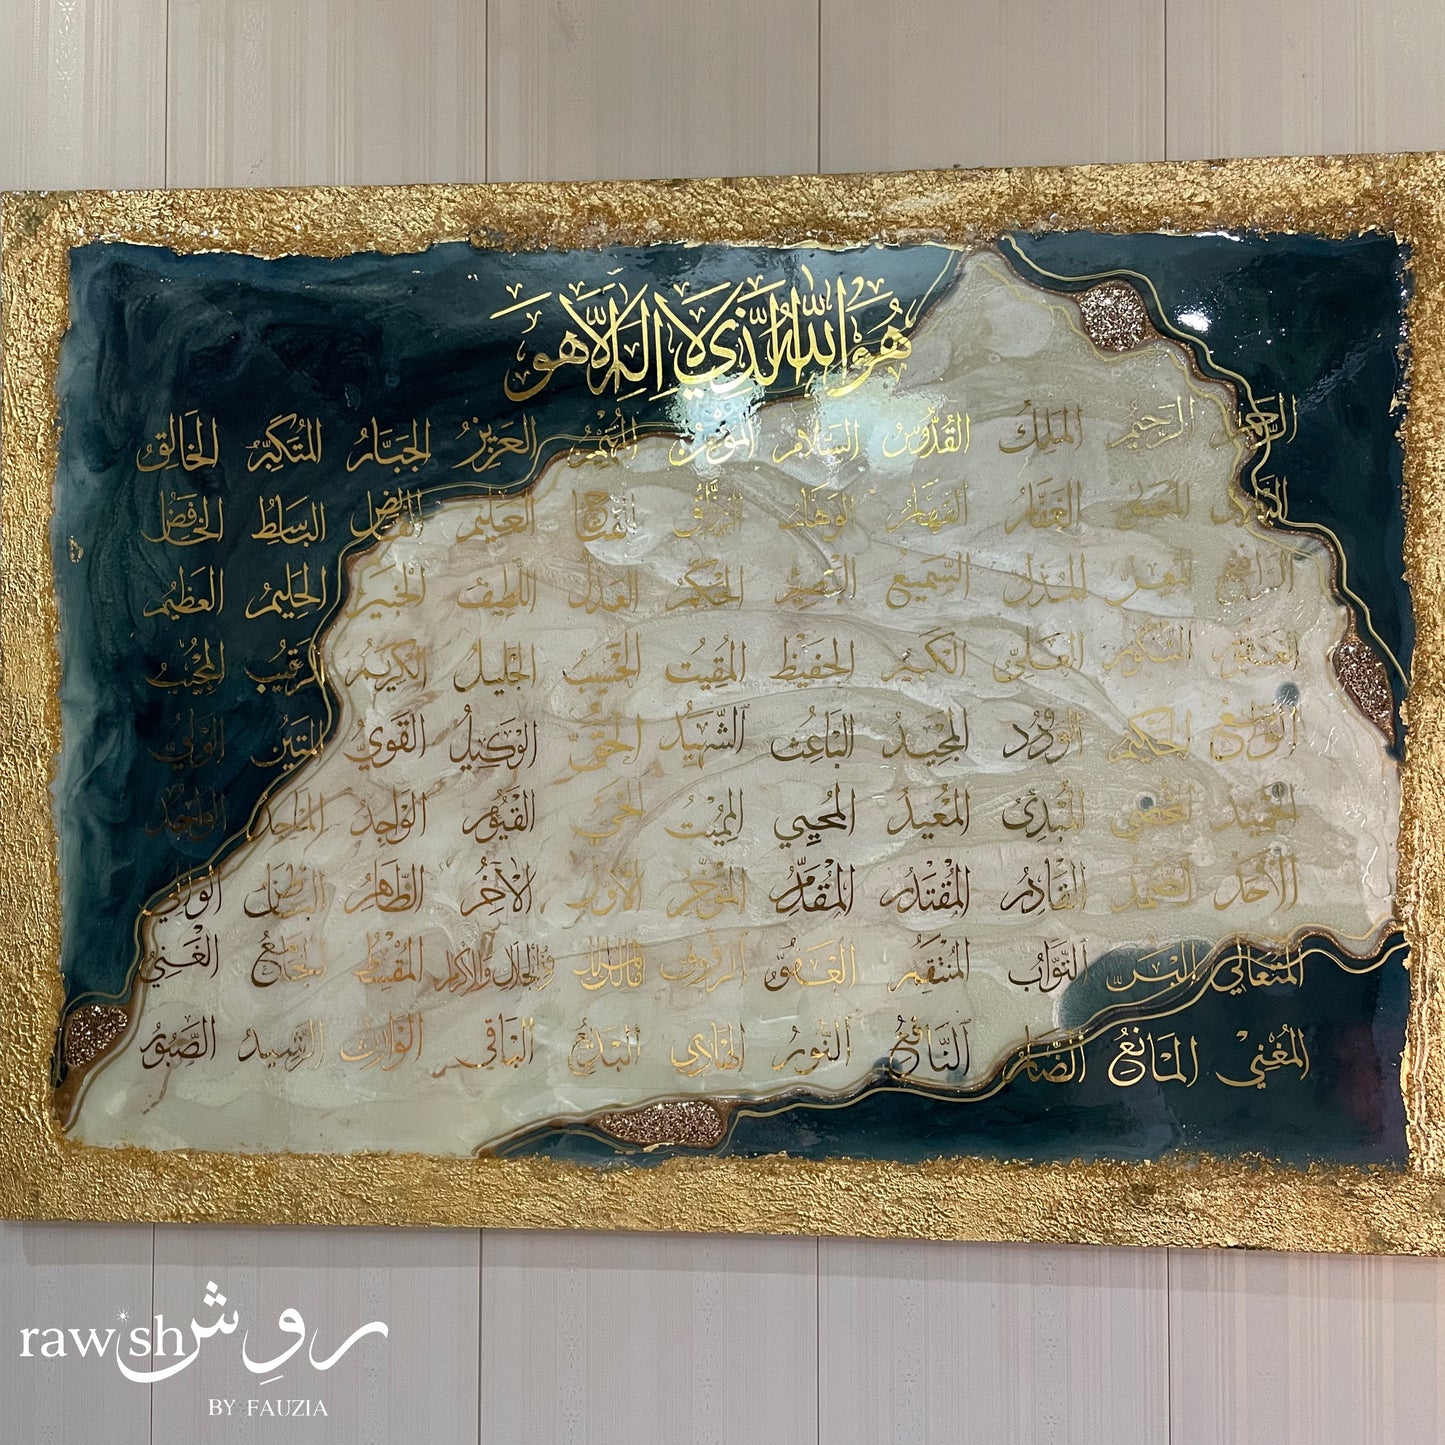 هُوَ اللهُ الَّذِي لَا إِلَهَ إِلَّا هُوَ
الرَّحْمٰنُ الرَّحِيمُ المَلِكُ القُدُّوسُ السَّلَامُ المُؤْمِنُ المُهَيْمِنُ العَزِيزُ الجَبَّارُ المُتَكَبِّرُ الخَالِقُ
الغَفَّارُ القَهَّارُ الوَهَّابُ الرَّزَّاقُ الفَتَّاحُ العَلِيمُ القَابِضُ البَاسِطُ الخَافِضُ
الرَّافِعُ المُعِزُّ المُذِلُّ السَّمِيعُ البَصِيرُ الحَكَمُ العَدْلُ اللَّطِيفُ الخَبِيرُ الحَلِيمُ العَظِيمُ
الشَّكُورُ العَلِيُّ الكَبِيرُ الحَفِيظُ المُقِيتُ الحَسِيبُ الجَلِيلُ الكَرِيمُ الرَّقِيبُ المُجِيبُ
الوَاسِعُ الحَكِيمُ الوَدُودُ المَجِيدُ البَاعِثُ الشَّهِيدُ الحَقُّ الوَكِيلُ القَوِيُّ المَتِينُ الوَلِيُّ
الحَمِيدُ المُحْصِي المُبْدِئُ المُعِيدُ المُحْيِي المُمِيتُ الحَيُّ القَيُّومُ الوَاجِدُ المَاجِدُ الوَاحِدُ
الأَحَدُ الصَّمَدُ القَادِرُ المُقْتَدِرُ المُقَدِّمُ المُؤَخِّرُ الأَوَّلُ الآخِرُ الظَّاهِرُ البَاطِنُ الوَالِي
المُتَعَالِي البَرُّ التَّوَّابُ المُنْتَقِمُ العَفُوُّ الرَّؤُوفُ مَالِكُ المُلْكِ ذُو الجَلَالِ وَالإِكْرَامِ المُقْسِطُ الجَامِعُ الغَنِيُّ
المُغْنِي المَانِعُ الضَّارُّ النَّافِعُ النُّورُ الهَادِي البَدِيعُ البَاقِي الوَارِثُ الرَّشِيدُ الصَّبُورُ
rawish روِش
BY FAUZIA